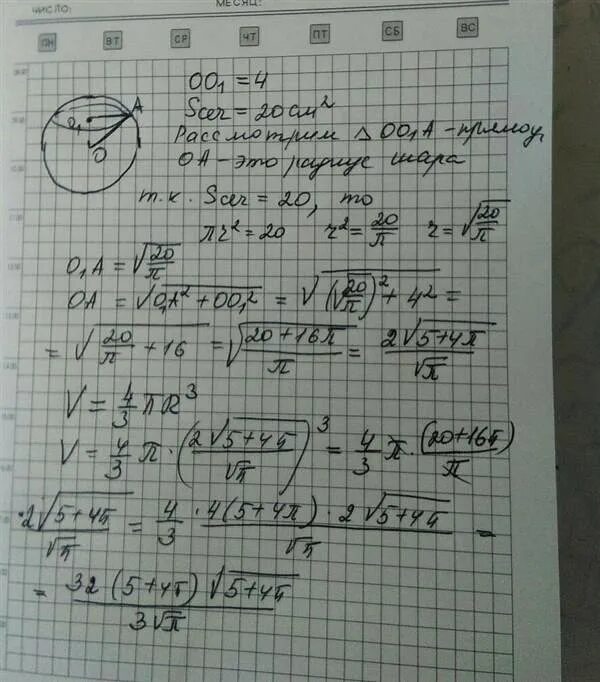 ЧИСЛО: МЕСЯЦ:
ПН ВТ СР ЧТ ПТ СБ ВС
OO₁ = 4
Sсеч = 20 см²
Рассмотрим △ OO₁A - прямоу.
OA - это радиус шара
A
O₁
O
т.к. Sсеч = 20, то
πr² = 20 r² = 20/π r = √(20/π)
O₁A = √(20/π)
OA = √(O₁A² + OO₁²) = √((√(20/π))² + 4²) =
= √(20/π + 16) = √((20+16π)/π) = 2√(5+4π)/√π
V = 4/3 πR³
V = 4/3 π · (2√(5+4π)/√π)³ = 4/3 π · (20+16π)/π
· 2√(5+4π)/√π = 4/3 · 4(5+4π) · 2√(5+4π)/√π =
= 32(5+4π)√(5+4π)/3√π